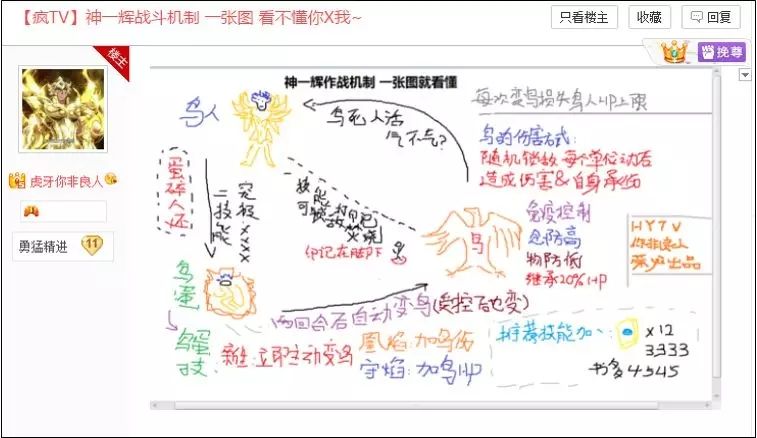 【疯TV】神一辉战斗机制 一张图 看不懂你X我~
只看楼主
收藏
回复
楼主
挽尊
虎牙你非良人
勇猛精进
11
神一辉作战机制 一张图就看懂
鸟人
鸟死人活
气不气?
每次变鸟损失鸟人HP上限
鸟的伤害方式:
随机锁敌 每个单位动后
造成伤害&自身承伤
蛋碎人还
二技能
究极xxxx
技能
可
焚烧
印记在脚下
鸟
免疫控制
念防高
物防低
继承20%HP
HYTV
你非良人
荣处出品
鸟蛋
两回合后自动变鸟(受控后也变)
鸟蛋
技:
新生:立即主动变鸟
凰焰:加鸟伤
守焰:加鸟HP
推荐技能加:
x12
3333
书多4545